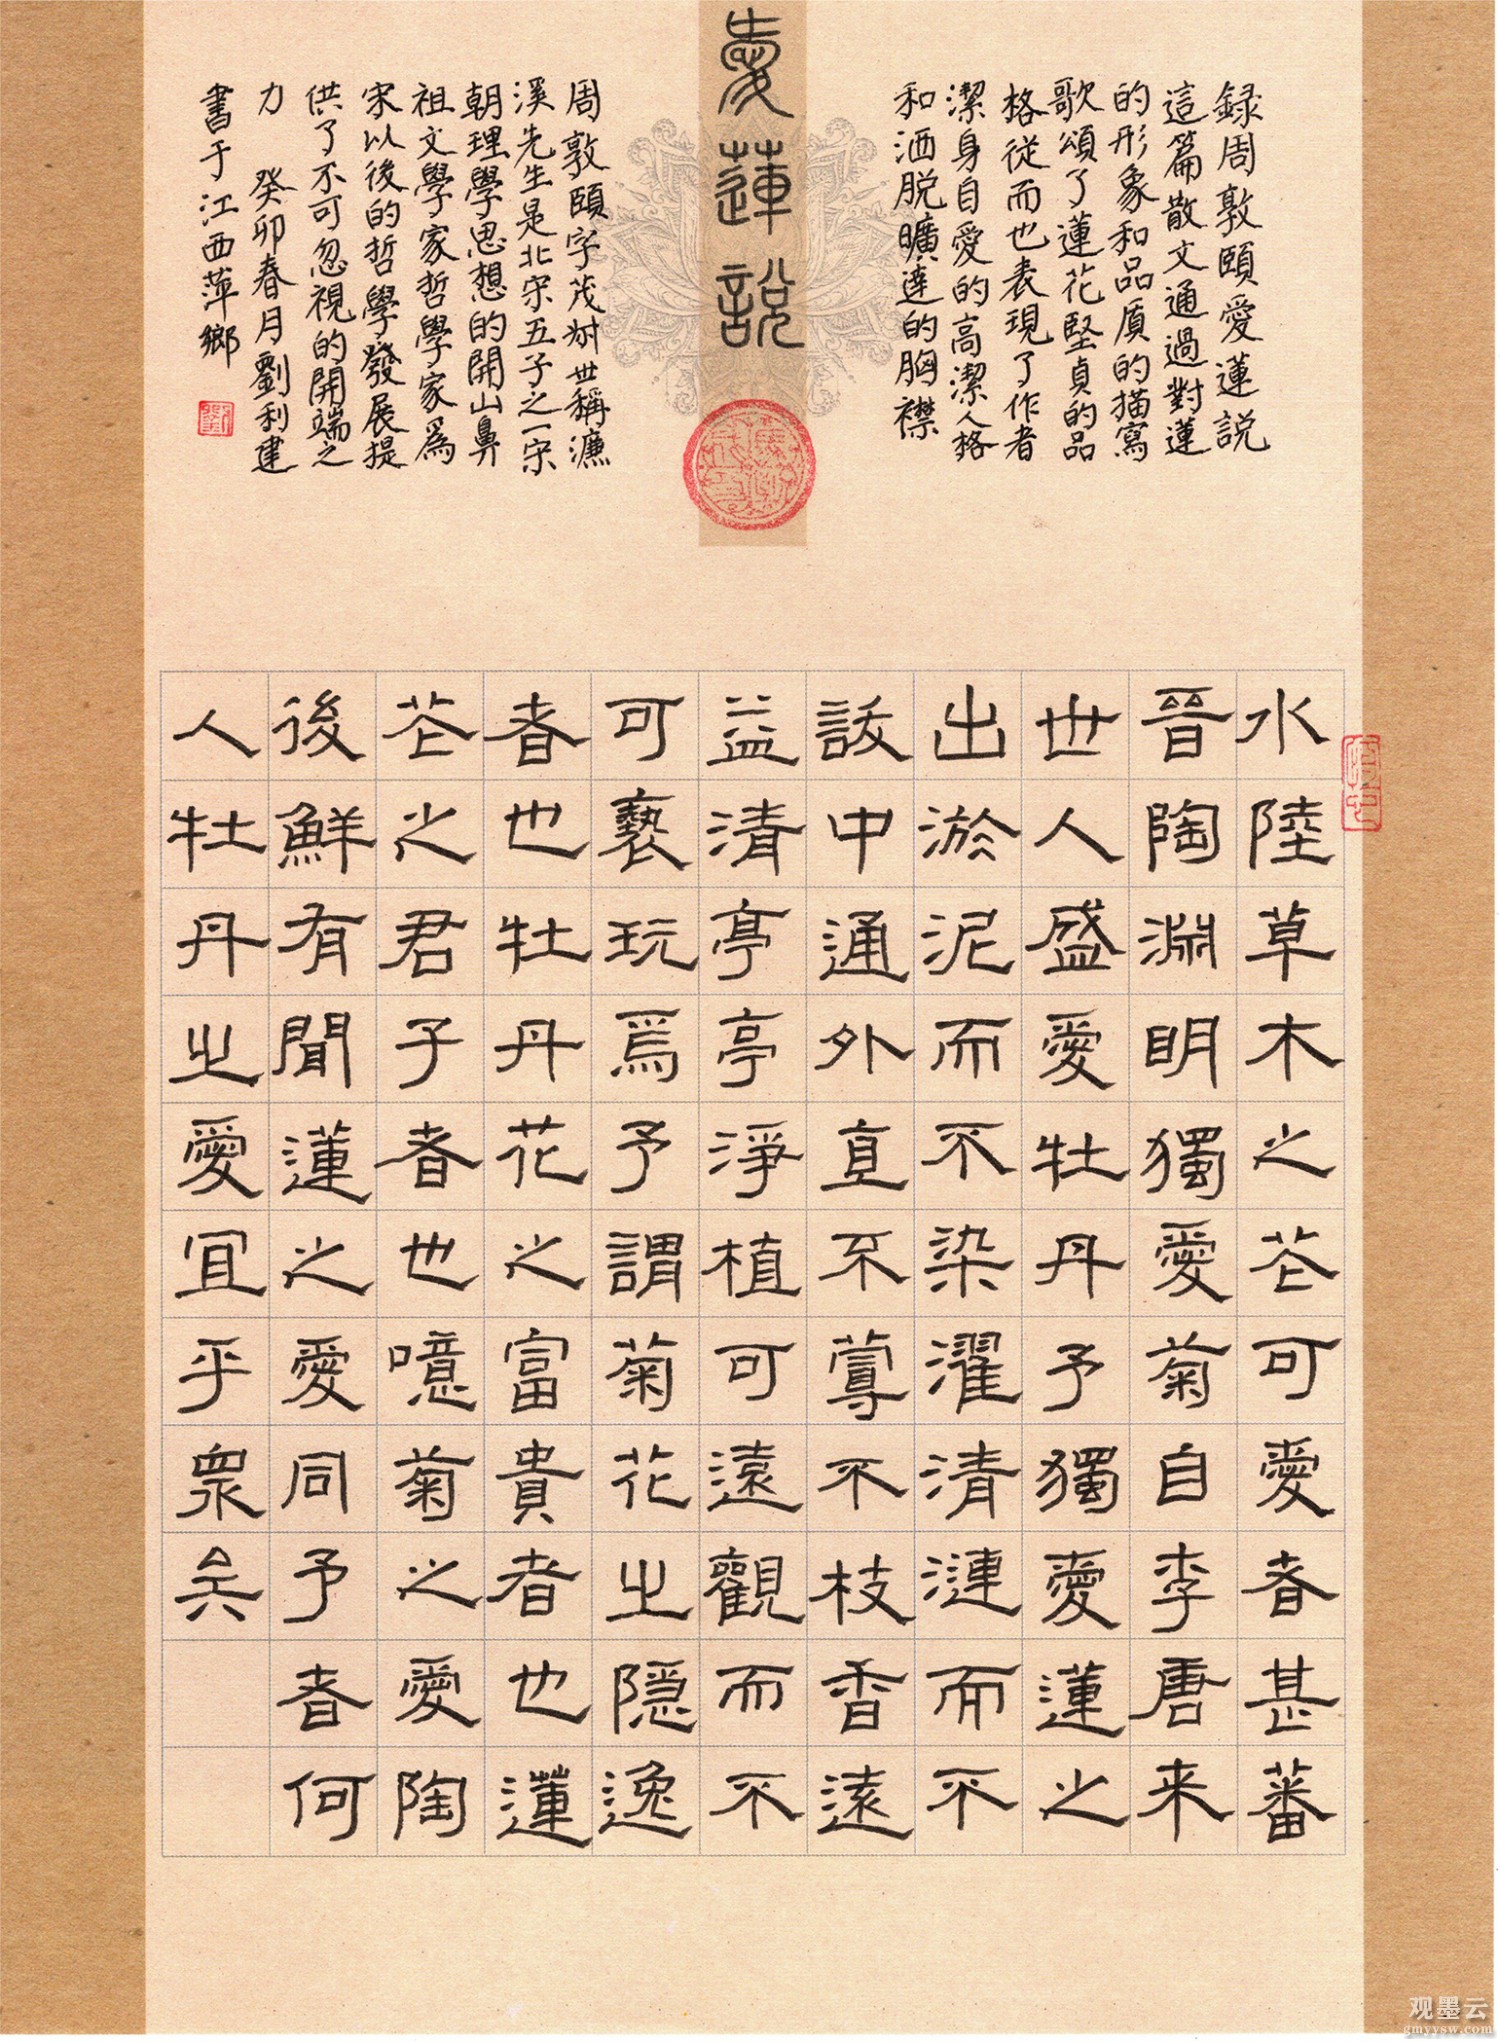 愛蓮說
録周敦頤愛蓮説
這篇散文通過對蓮
的形象和品質的描寫
歌頌了蓮花堅貞的品
格從而也表現了作者
潔身自愛的高潔人格
和洒脱曠達的胸襟
周敦頤字茂叔世稱濂
溪先生是北宋五子之一宋
朝理學思想的開山鼻
祖文學家哲學家爲
宋以後的哲學發展提
供了不可忽視的開端之
力 癸卯春月劉利建
書于江西萍鄉
水陸草木之花可愛者甚蕃
晉陶淵明獨愛菊自李唐来
世人盛愛牡丹予獨愛蓮之
出淤泥而不染濯清漣而不
訞中通外直不蔓不枝香遠
益清亭亭淨植可遠觀而不
可褻玩焉予謂菊花之隱逸
者也牡丹花之富貴者也蓮
花之君子者也噫菊之愛陶
後鮮有聞蓮之愛同予者何
人牡丹之愛宜乎衆矣
观墨云
gmyysw.com